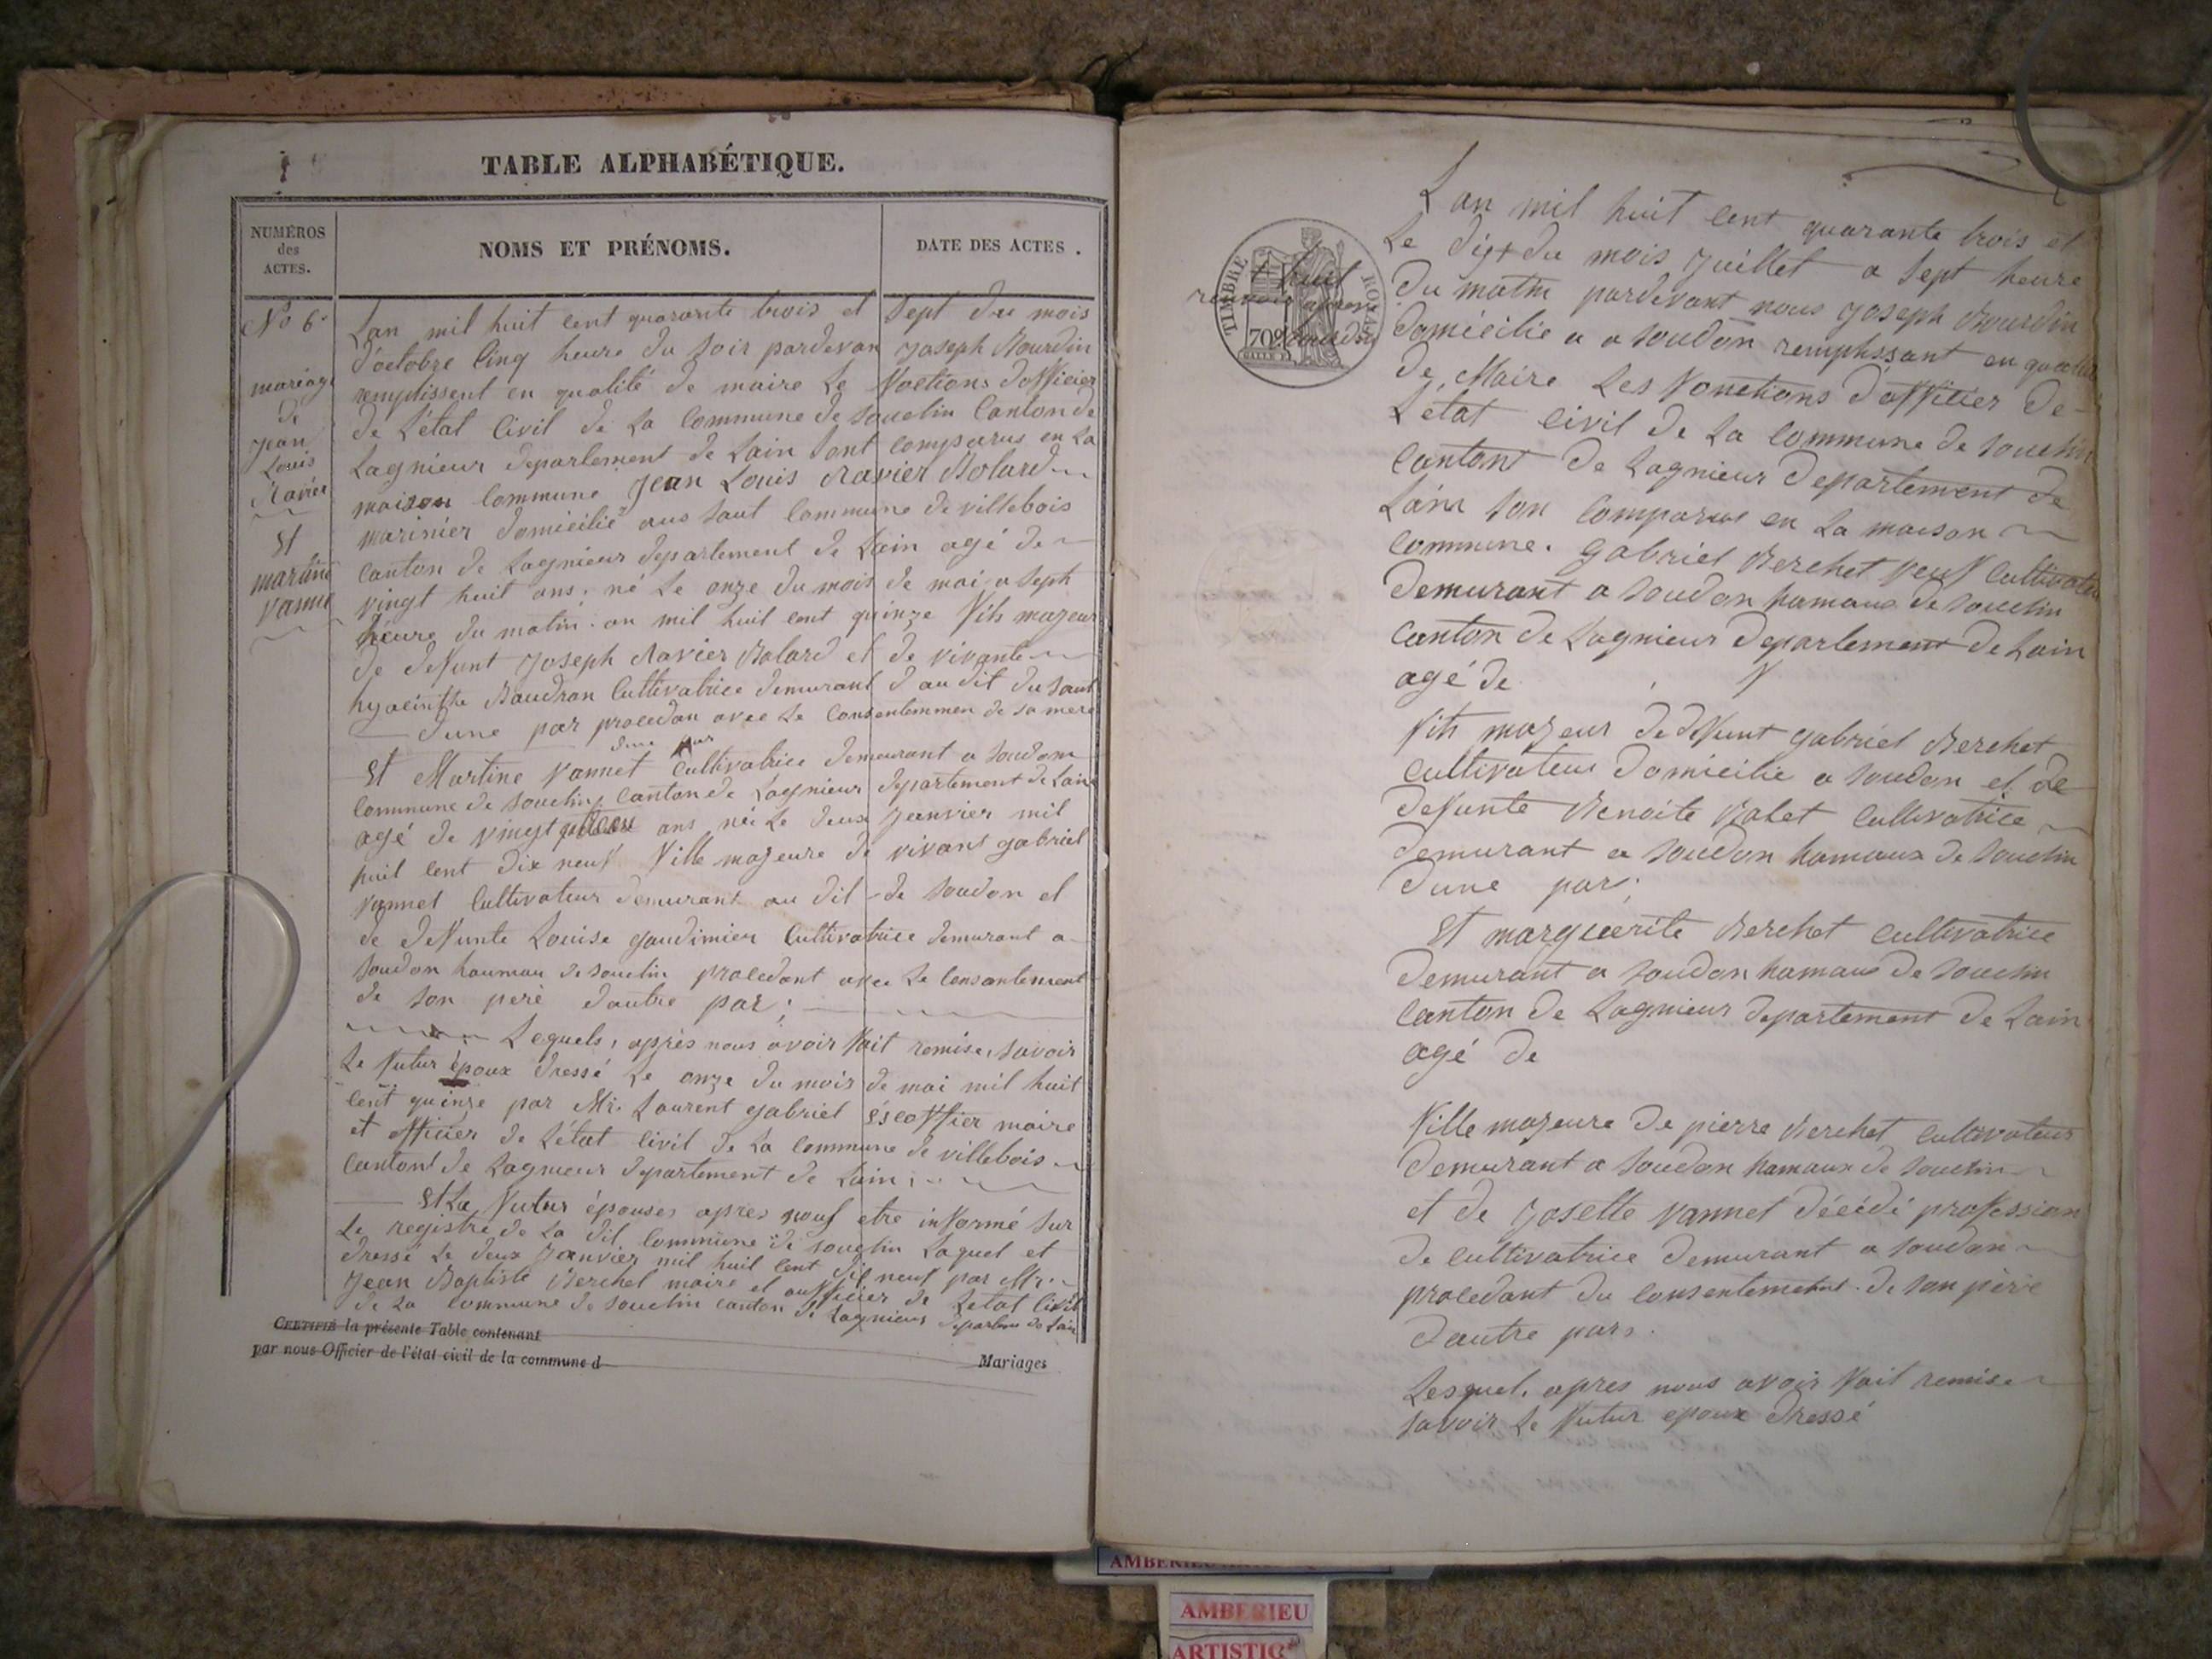 TABLE ALPHABÉTIQUE.
NUMÉROS
des
ACTES.
NOMS ET PRÉNOMS.
DATE DES ACTES.
No 6.
mariage
de
Jean
Louis
Ravier
Et
martine
vannet
Lan mil huit cent quarante trois et Sept du mois
d'octobre Cinq heure du Soir pardevan Joseph Bourdin
remplissent en qualité de maire Le Foctions dofficier
de L'état Civil de La Commune de Souclin Canton de
Lagnieur departement de Lain Sont comparus en La
maison Commune Jean Louis Ravier Bolard
marinier domicilié aus Saut Commune de villebois
Canton de Lagnieur departement de Lain agé de
vingt huit ans, né Le onze du mois de mai a Seph
heure du matin an mil huit cent quinze Fils majeur
de defunt Joseph Ravier Bolard et de vivante
hyacinthe Baudran Cultivatrice demurant d au dit du Saut
dune par procedan avec Le Consentemmen de sa mere
dune par
Et Martine Vannet Cultivatrice demeurant a Soudon
Commune de Souclin Canton de Lagnieur departement de Lain
agé de vingt ans née Le deux Janvier mil
huit cent dix neuf Fille majeure de vivant gabriel
vannet Cultivateur demurant au dit de Soudon et
de defunte Louise gaudimier Cultivatrice demurant a
Soudon haumau de Souclin procedant avec Le Consentement
de Son peré dautre par;
Lequels, après nous avoir Fait remise, Savoir
Le Futur époux dressé Le onze du mois de mai mil huit
cent quinze par Mr. Laurent gabriel éscoffier maire
et officier de L'état Civil de La Commune de villebois
Canton de Lagnieur departement de Lain;
Et La Futur épouses apres nous etre informé Sur
Le registre de La dit Commune de Souclin Laquel et
dressé Le deux Janvier mil huit cent dix neuf par Mr.
Jean Baptiste Berchet maire et aufficier de Letat Civil
de La Commune de Souclin canton de Lagnieur departem de Lain
CERTIFIÉ la présente Table contenant
par nous Officier de l'état civil de la commune d
Mariages
TIMBRE ROYAL
70c
huit
Lan mil huit cent quarante trois et
Le dix du mois Juillet a Sept heure
du matin pardevant nous Joseph Bourdin
domicilie a a Soudon remplissant en qualite
de Maire Les Fonctions d'officier de
L'état civil de La Commune de Souclin
Cantont de Lagnieur Departement de
Lain Son Comparus en La maison
Commune. gabriel Berchet veuf Cultivateu
demurant a Soudon hamaux de Souclin
Canton de Lagnieur departement de Lain
agé de
Fils majeur de defunt gabriel Berchet
Cultivateur domicilie a Soudon et de
defunte Benoite Babet Cultivatrice
demurant a Soudon hamaux de Souclin
dune par;
Et marguerite Berchet cultivatrice
demurant a Soudon hamaus de Souclin
Canton de Lagnieur departement de Lain
agé de
Fille majeure de pierre Berchet cultivateur
demurant a Soudon hamaux de Souclin
et de Josette vannet décédé profession
de cultivatrice demurant a Soudon
procedant du consentement de Son père
dautre par.
Lesquel, apres nous avoir Fait remise
Savoir Le Futur epoux dressé
AMBERIEU
AMBERIEU
ARTISTIC